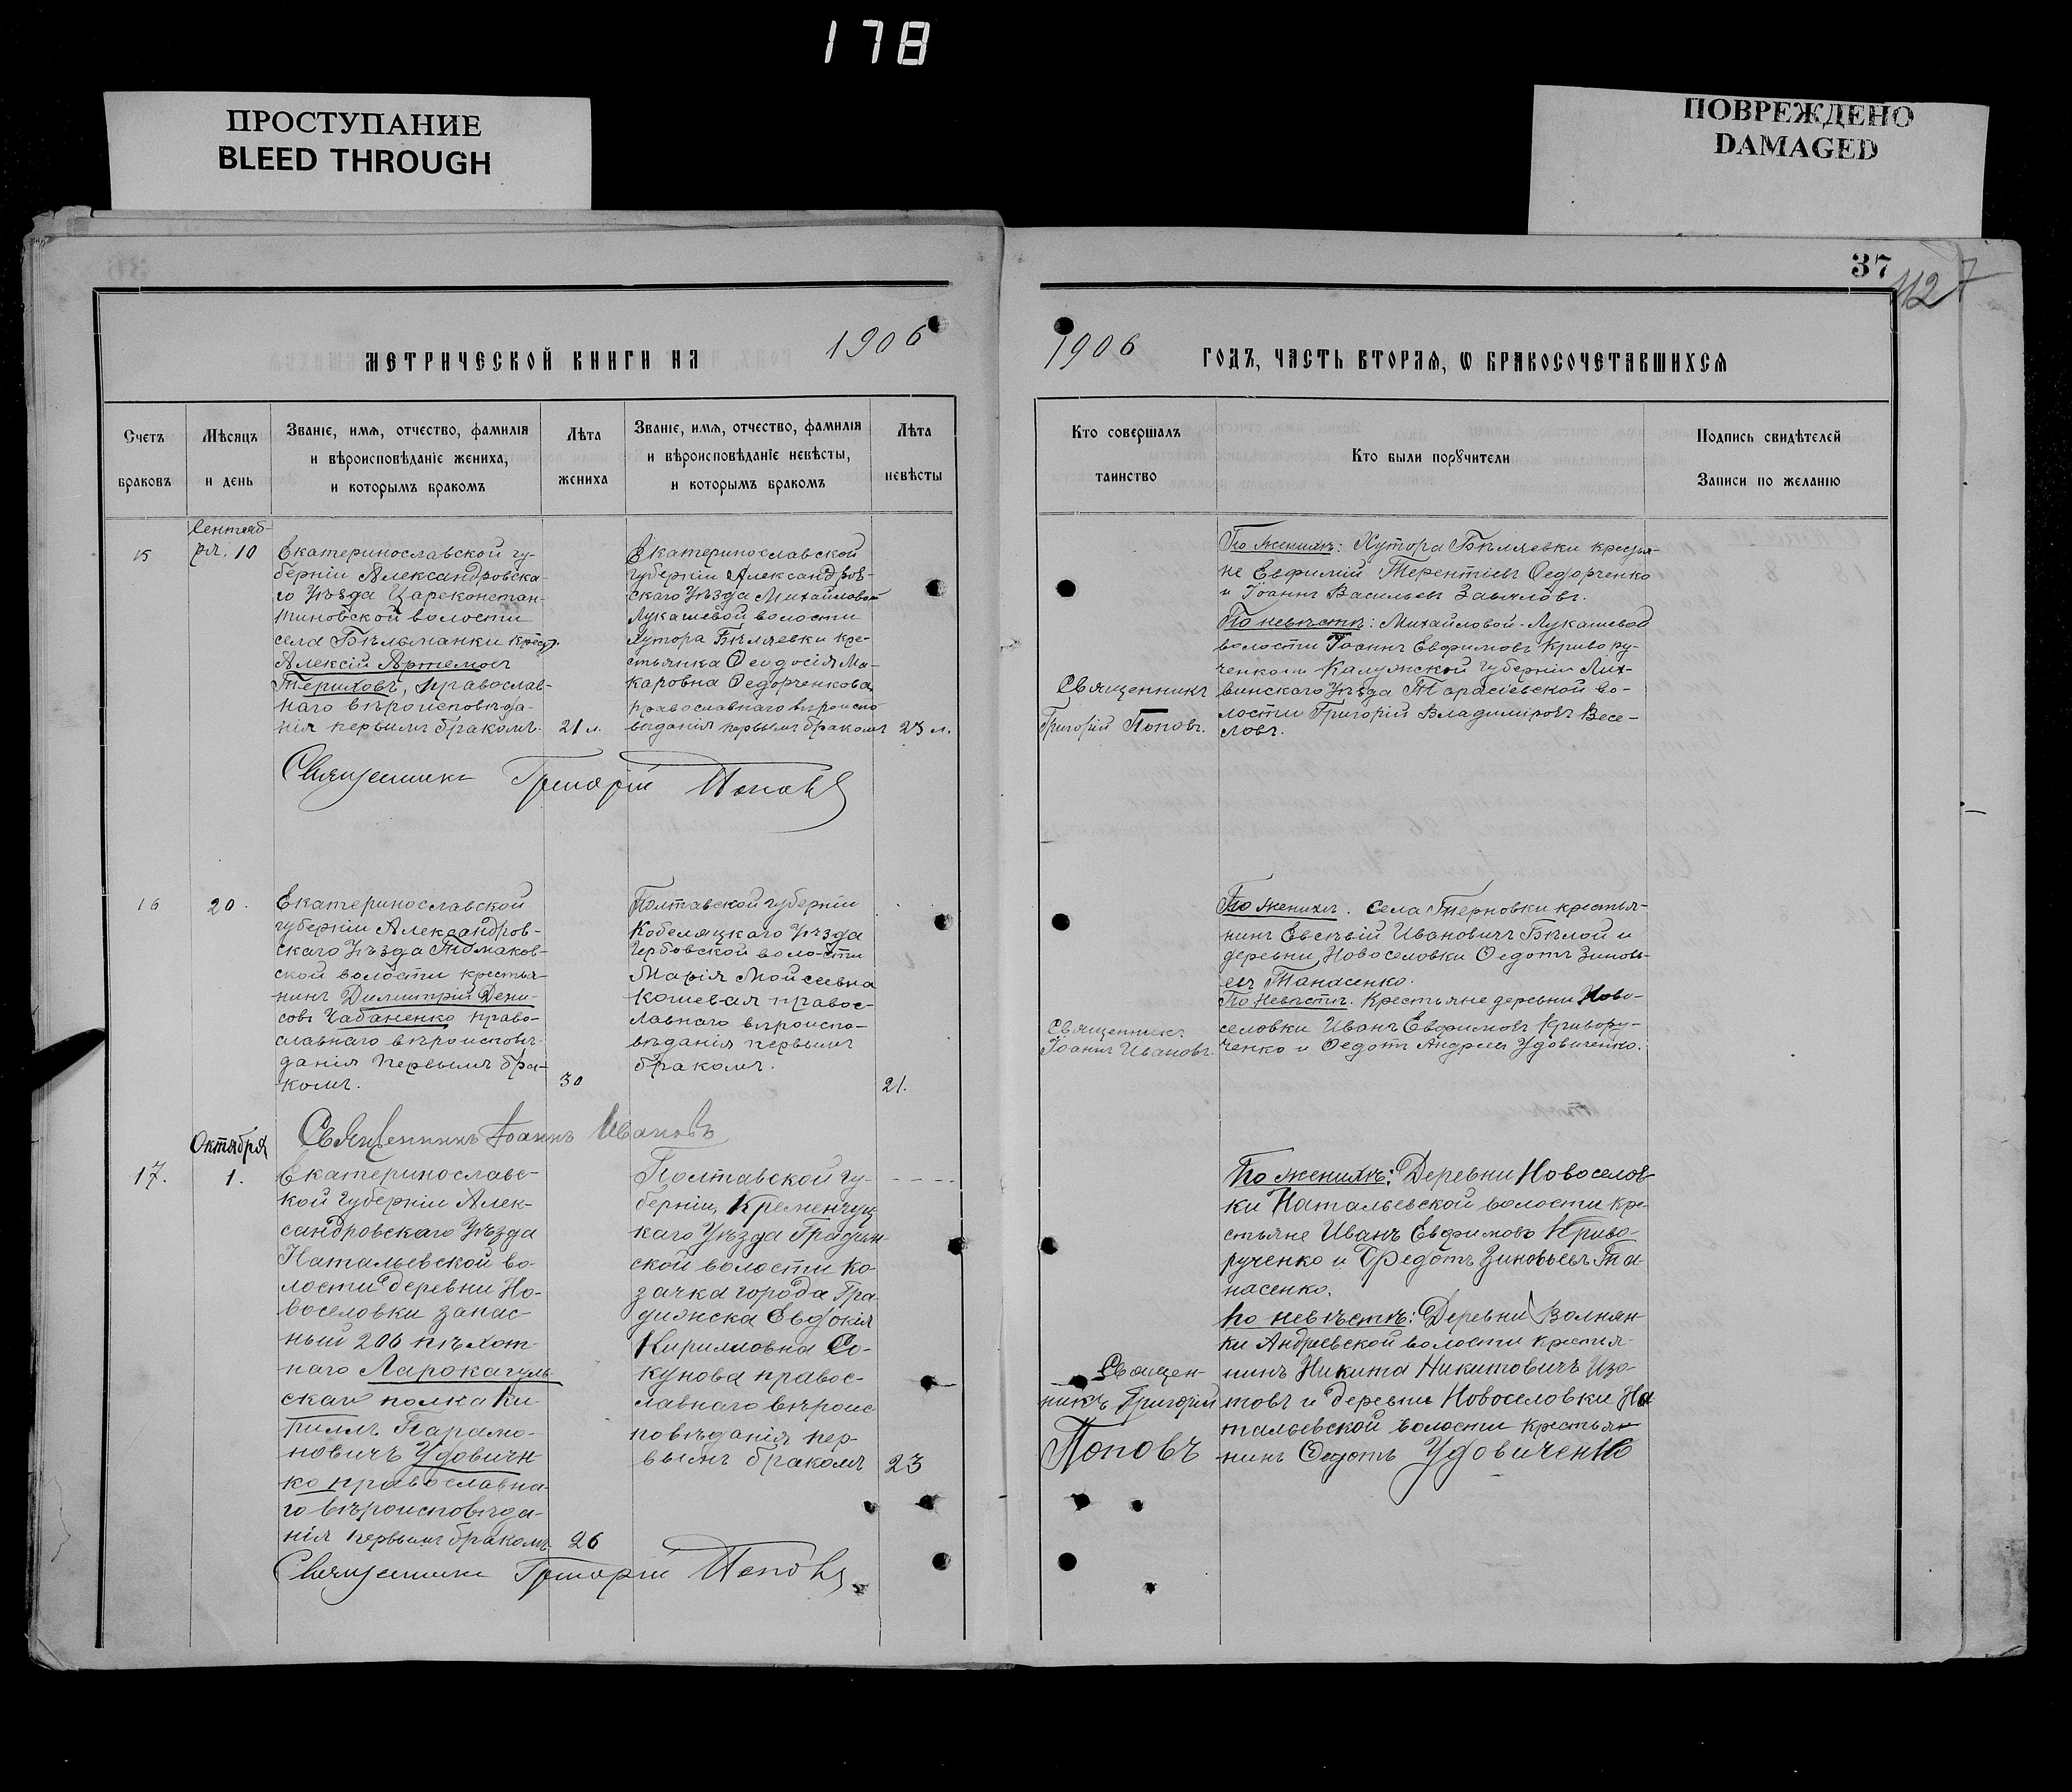 178
ПРОСТУПАНИЕ
BLEED THROUGH
ПОВРЕЖДЕНО
DAMAGED
37
1127
МЕТРИЧЕСКОЙ КНИГИ НА 1906
1906 ГОДЪ, ЧАСТЬ ВТОРАЯ, Ѡ БРАКОСОЧЕТАВШИХСЯ
Счетъ
браковъ
Мѣсяцъ
и день
Званіе, имя, отчество, фамилія
и вѣроисповѣданіе жениха,
и которымъ бракомъ
Лѣта
жениха
Званіе, имя, отчество, фамилія
и вѣроисповѣданіе невѣсты,
и которымъ бракомъ
Лѣта
невѣсты
Кто совершалъ
таинство
Кто были порꙋчители
Подпись свидѣтелей
Записи по желанію
15
Сентяб-
ря. 10
Екатеринославской гу-
берніи Александровска-
го Уѣзда Цареконстан-
тиновской волости
села Бѣльманки крест.
Алексій Артемовъ
Териховъ, православ-
наго вѣроисповѣда-
нія первымъ бракомъ.
21 л.
Екатеринославской
губерніи Александров-
скаго Уѣзда Михайловой
Лукашевой волости
хутора Бѣляевки кре-
стьянка Ѳеодосія Ма-
каровна Ѳедорченкова
православнаго вѣроиспо
вѣданія первымъ бракомъ
23 л.
Священникъ
Григорій Поповъ.
По женихѣ: Хутора Бѣляевки крестья-
не Евфимій Терентіевъ Ѳедорченко
и Іоаннъ Васильевъ Завяловъ.
По невѣстѣ: Михайловой-Лукашевой
волости Іоаннъ Евфимовъ Криво ру-
ченко и Калужской губерніи Лих-
винскаго Уѣзда Тарасіевской во-
лости Григорій Владиміровъ Весе-
ловъ.
Священникъ Григорій Поповъ
16
20.
Екатеринославской
губерніи Александров-
скаго Уѣзда Томаков-
ской волости крестья-
нинъ Димитрій Дени-
совъ Чабаненко право-
славнаго вѣроисповѣ-
данія первымъ бра-
комъ.
30
Полтавской губерніи
Кобеляцкаго Уѣзда
Чербовской волости
Марія Мойсеевна
Кошевая правос-
лавнаго вѣроиспо-
вѣданія первымъ
бракомъ.
21.
Священникъ
Іоаннъ Ивановъ.
По женихѣ. Села Терновки крестья-
нинъ Евсевій Ивановичъ Бѣлой и
деревни Новоселовки Ѳедотъ Зиновь-
евъ Танасенко.
По невѣстѣ. Крестьяне деревни Ново-
селовки Иванъ Евфимовъ Кривору-
ченко и Ѳедотъ Андреевъ Удовиченко.
Священникъ Іоаннъ Ивановъ
17.
Октября
1.
Екатеринославс-
кой губерніи Алек-
сандровскаго Уѣзда
Натальевской во-
лости деревни Но-
воселовки запас-
ный 206 пѣхот-
наго Ларокагуль
скаго полка Ки
риллъ Парамо-
новичъ Удовичен
ко православна-
го вѣроисповѣда-
нія первымъ бракомъ
26
Полтавской гу-
берніи, Кременчуц
каго Уѣзда Градиж
ской волости ко
зачка города Гра
дижска Евдокія
Кирилловна Со-
кунова правос-
лавнаго вѣроис
повѣданія пер-
вымъ бракомъ
23
Священ-
никъ Григорій
Поповъ
По женихѣ: Деревни Новоселов-
ки Натальевской волости кре-
стьяне Иванъ Евфимовъ Криво-
рученко и Федотъ Зиновьевъ Та-
насенко.
По невѣстѣ: Деревни Волнян-
ки Андреевской волости крестья-
нинъ Никита Никитовичъ Изо-
товъ и деревни Новоселовки На
тальевской волости крестья-
нинъ Ѳедотъ Удовиченко
Священникъ Григорій Поповъ